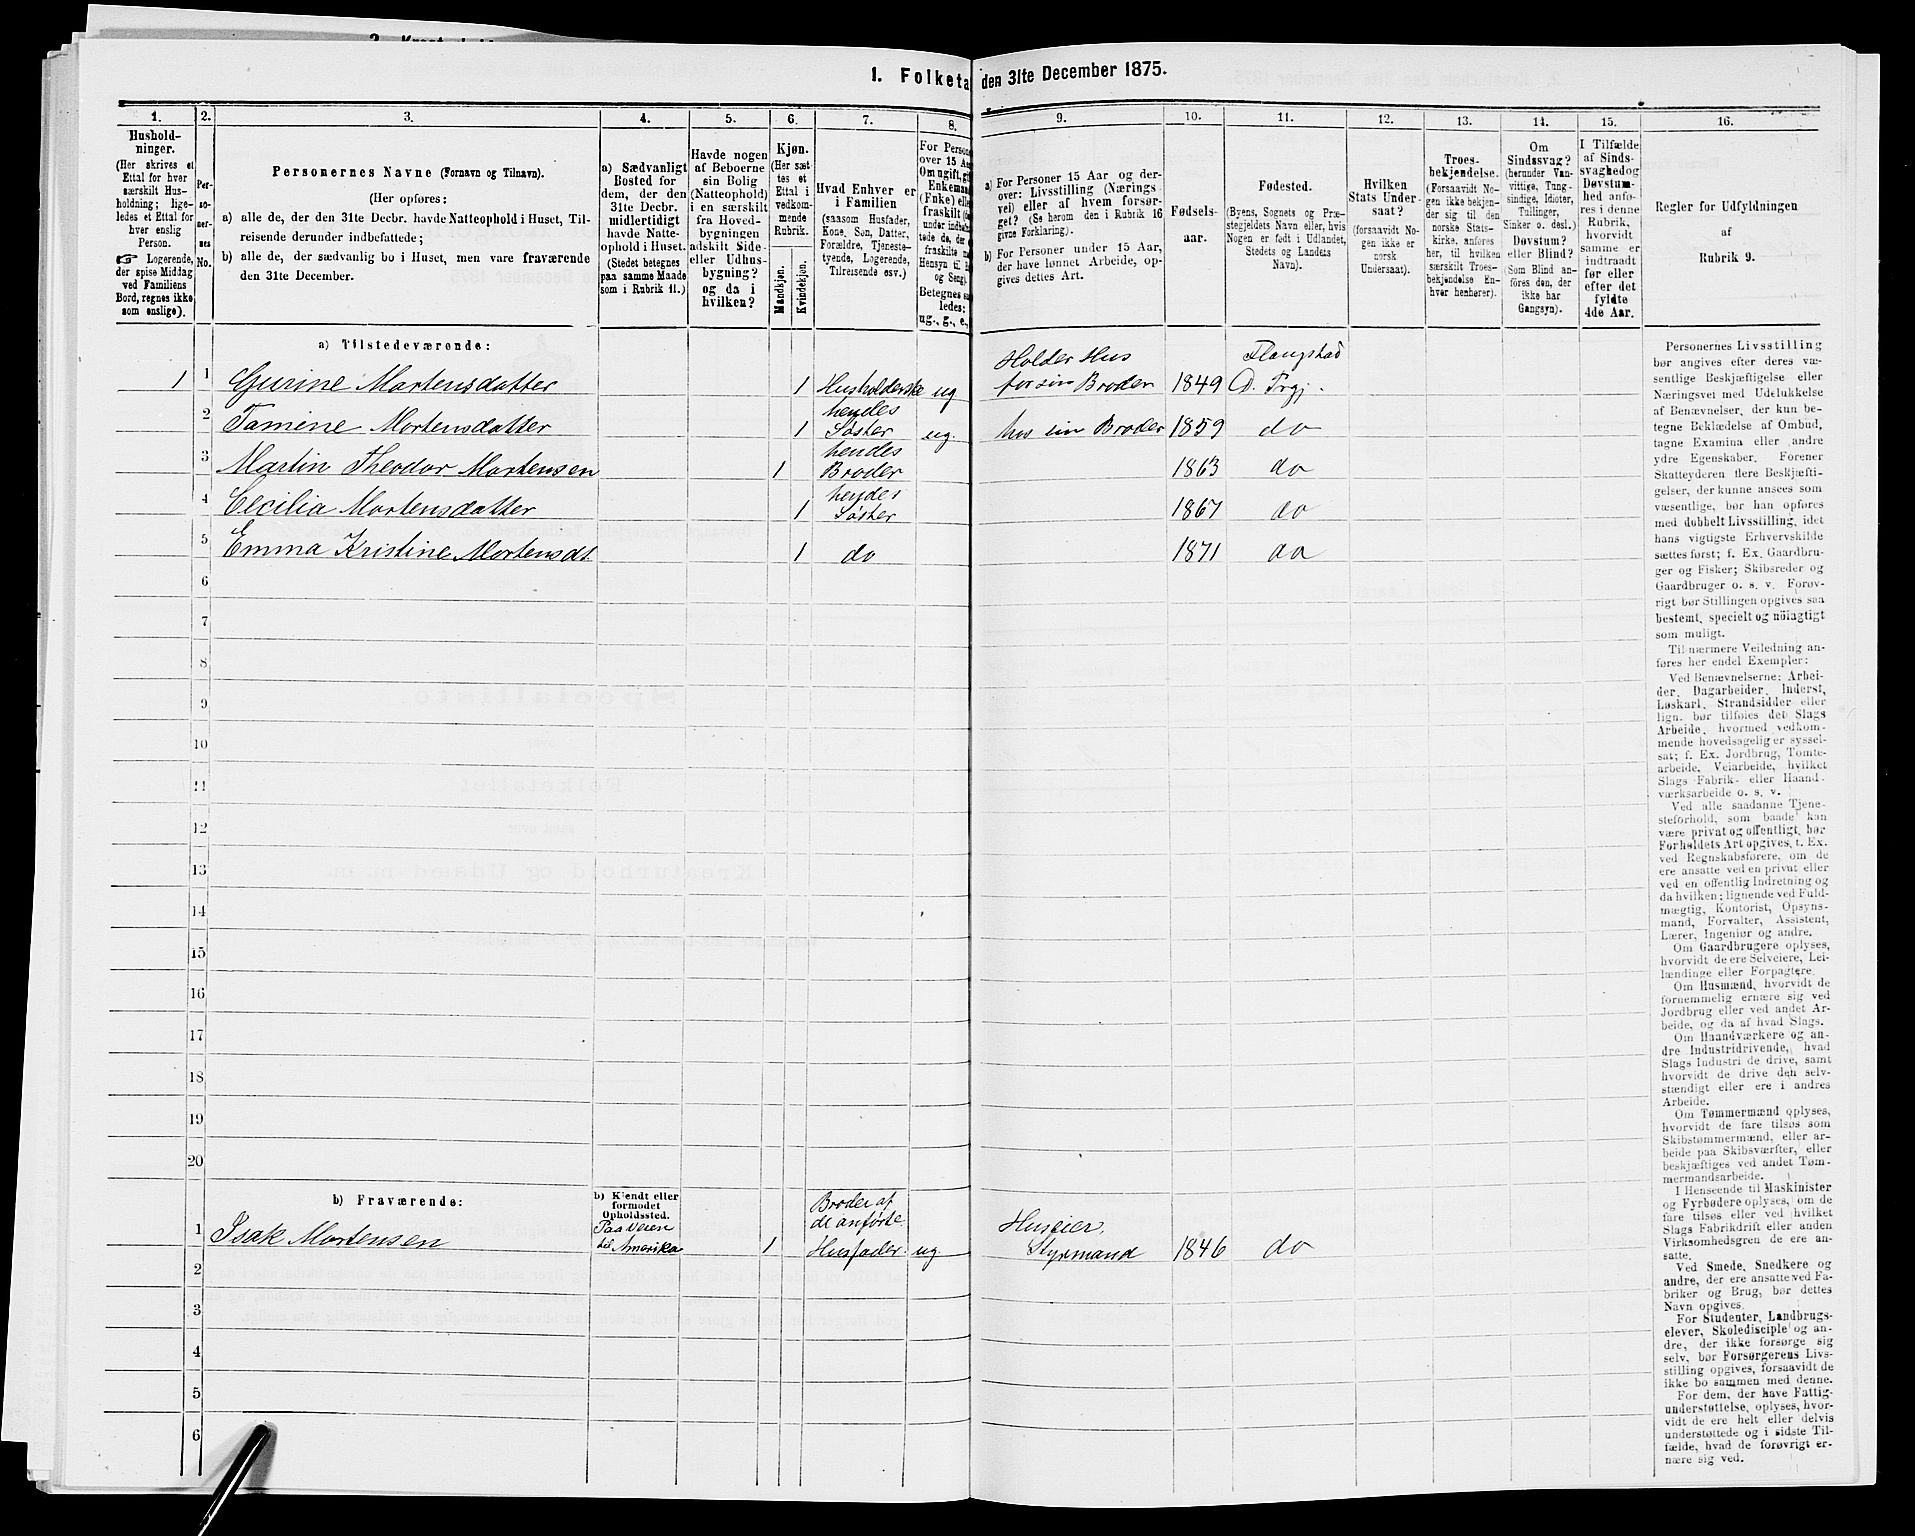 1. Folketa den 31te December 1875.
1. 2. 3. 4. 5. 6. 7. 8. 9. 10. 11. 12. 13. 14. 15. 16.
Hushold-
ninger.
(Her skrives et
Ettal for hver
særskilt Hus-
holdning; lige-
ledes et Ettal for
hver enslig
Person.
☞ Logerende,
der spise Middag
ved Familiens
Bord, regnes ikke
som enslige).
Per-
so-
ner-
nes
No.
Personernes Navne (Fornavn og Tilnavn).
(Her opføres:
a) alle de, der den 31te Decbr. havde Natteophold i Huset, Til-
reisende derunder indbefattede;
b) alle de, der sædvanlig bo i Huset, men vare fraværende
den 31te December.
a) Sædvanligt
Bosted for
dem, der den
31te Decbr.
midlertidigt
havde Natte-
ophold i Huset.
(Stedet betegnes
paa samme Maade
som i Rubrik 11.)
Havde nogen
af Beboerne
sin Bolig
(Natteophold)
i en særskilt
fra Hoved-
bygningen
adskilt Side-
eller Udhus-
bygning?
og da i
hvilken?
Kjøn.
(Her sæt-
tes et
Ettal i
vedkom-
mende
Rubrik.
Mandkjøn.
Kvindekjøn.
Hvad Enhver er
i Familien
(saasom Husfader,
Kone, Søn, Datter,
Forældre, Tjeneste-
tyende, Logerende,
Tilreisende osv.)
For Persone
over 15 Aa
Om ugift, gif
Enkeman
(Enke) elle
fraskilt (d
under indbefat-
tede de, der
fraskilte
Hensyn til B
og Seng)
Betegnes saa
ledes:
ug., g., e.,
a) For Personer 15 Aar og der-
over: Livsstilling (Nærings-
vei) eller af hvem forsør-
get? (Se herom den i Rubrik 16
givne Forklaring).
b) For Personer under 15 Aar,
der have lønnet Arbeide, op-
gives dettes Art.
Fødsels-
aar.
Fødested.
(Byens, Sognets og Præ-
stegjeldets Navn eller, hvis
Nogen er født i Udlandet,
Stedets og Landets
Navn).
Hvilken
Stats Under-
saat?
(forsaavidt No-
gen ikke er
norsk
Undersaat).
Troes-
bekjendelse.
(Forsaavidt No-
gen ikke bekjen-
der sig til den
norske Stats-
kirke, anføres
her, til hvilken
særskilt Troes-
bekjendelse En-
hver henhører).
Om
Sindssvag?
(herunder Van-
vittige, Tung-
sindige, Idioter,
Tullinger,
Sinker o. desl.)
Døvstum?
eller Blind?
(Som Blind an-
føres den, der
ikke har
Gangsyn).
I Tilfælde
af Sinds-
svaghed og
Døvstum-
hed anfø-
res i denne
Rubrik,
hvorvidt
samme er
indtraadt
før eller
efter det
fyldte
4de Aar.
Regler for Udfyldningen
af
Rubrik 9.
a) Tilstedeværende:
Holder Hus Flaugstad
1 1 Gurine Martensdatter 1 Husholderske ug for sin Broder 1849 O. Prgj.
hendes
2 Tamine Mortensdatter 1 Søster ug. hos sin Broder 1859 do
hendes
3 Martin Theodor Mortensen 1 Broder 1863 do
hendes
4 Cecilia Mortensdatter 1 Søster 1867 do
5 Emma Kristine Mortensdt. 1 do 1871 do
6
7
8
9
10
11
12
13
14
15
16
17
18
19
20
b) Fraværende:
b) Kjendt eller
formodet
Opholdssted.
Broder af
de anførte.
Paa Veien Huseier,
1 Isak Mortensen til Amerika 1 Husfader. ug. Styrmand 1846 do
2
3
4
5
6
Personernes Livsstilling
bør angives efter deres væ-
sentlige Beskjæftigelse eller
Næringsvei med Udelukkelse
af Benævnelser, der kun be-
tegne Beklædelse af Ombud,
tagne Examina eller andre
ydre Egenskaber. Forener
Skatteyderen flere Beskjæfti-
gelser, der kunne ansees som
væsentlige, bør han opføres
med dobbelt Livsstilling, idet
hans vigtigste Erhvervskilde
sættes først; f. Ex. Gaardbru-
ger og Fisker; Skibsreder og
Gaardbruger o. s. v. Forøv-
rigt bør Stillingen opgives saa
bestemt, specielt og nöiagtigt
som muligt.
Til nærmere Veiledning an-
føres her endel Exempler:
Ved Benævnelserne: Arbei-
der, Dagarbeider, Inderst,
Løskarl, Strandsidder eller
lign. bør tilføies det Slags
Arbeide, hvormed vedkom-
mende hovedsagelig er syssel-
sat; f. Ex. Jordbrug, Tomte-
arbeide, Veiarbeide, hvilket
Slags Fabrik- eller Haand-
værksarbeide o. s. v.
Ved alle saadanne Tjene-
steforhold, som baade kan
være privat og offentligt, bør
Forholdets Art opgives, f. Ex.
ved Regnskabsførere, om de
ere ansatte ved en privat eller
ved en offentlig Indretning og
da hvilken; lignende ved Fuld-
mægtig, Kontorist, Opsyns-
mand, Forvalter, Assistent,
Lærer, Ingeniør og andre.
Om Gaardbrugere oplyses,
hvorvidt de ere Selveiere, Lei-
lændinge eller Forpagtere.
Om Husmænd, hvorvidt de
fornemmelig ernære sig ved
Jordbrug eller ved andet Ar-
beide, og da af hvad Slags.
Om Haandværkere og an-
dre Industridrivende, hvad
Slags Industri de drive, samt
hvorvidt de drive den selv-
stændigt eller ere i andres
Arbeide.
Om Tømmermænd oplyses,
hvorvidt de fare tilsøs som
Skibstømmermænd, eller ar-
beide paa Skibsværfter, eller
beskjæftiges ved andet Tøm-
mermandsarbeide.
I Henseende til Maskinister
og Fyrbødere oplyses, om de
fare tilsøs eller ved hvilket
Slags Fabrikdrift eller anden
Virksomhedsgren de ere an-
satte.
Ved Smede, Snedkere og
andre, der ere ansatte ved Fa-
briker og Brug, bør dettes
Navn opgives.
For Studenter, Landbrugs-
elever, Skoledisciple og an-
dre, der ikke forsørge sig
selv, bør Forsørgerens Livs-
stilling opgives, forsaavidt de
ikke bo sammen med denne.
For dem, der have Fattig-
understøttelse, oplyses, hvor-
vidt de ere helt eller delvis
understøttede og i sidste Til-
fælde, hvad de forøvrigt er-
nære sig ved.